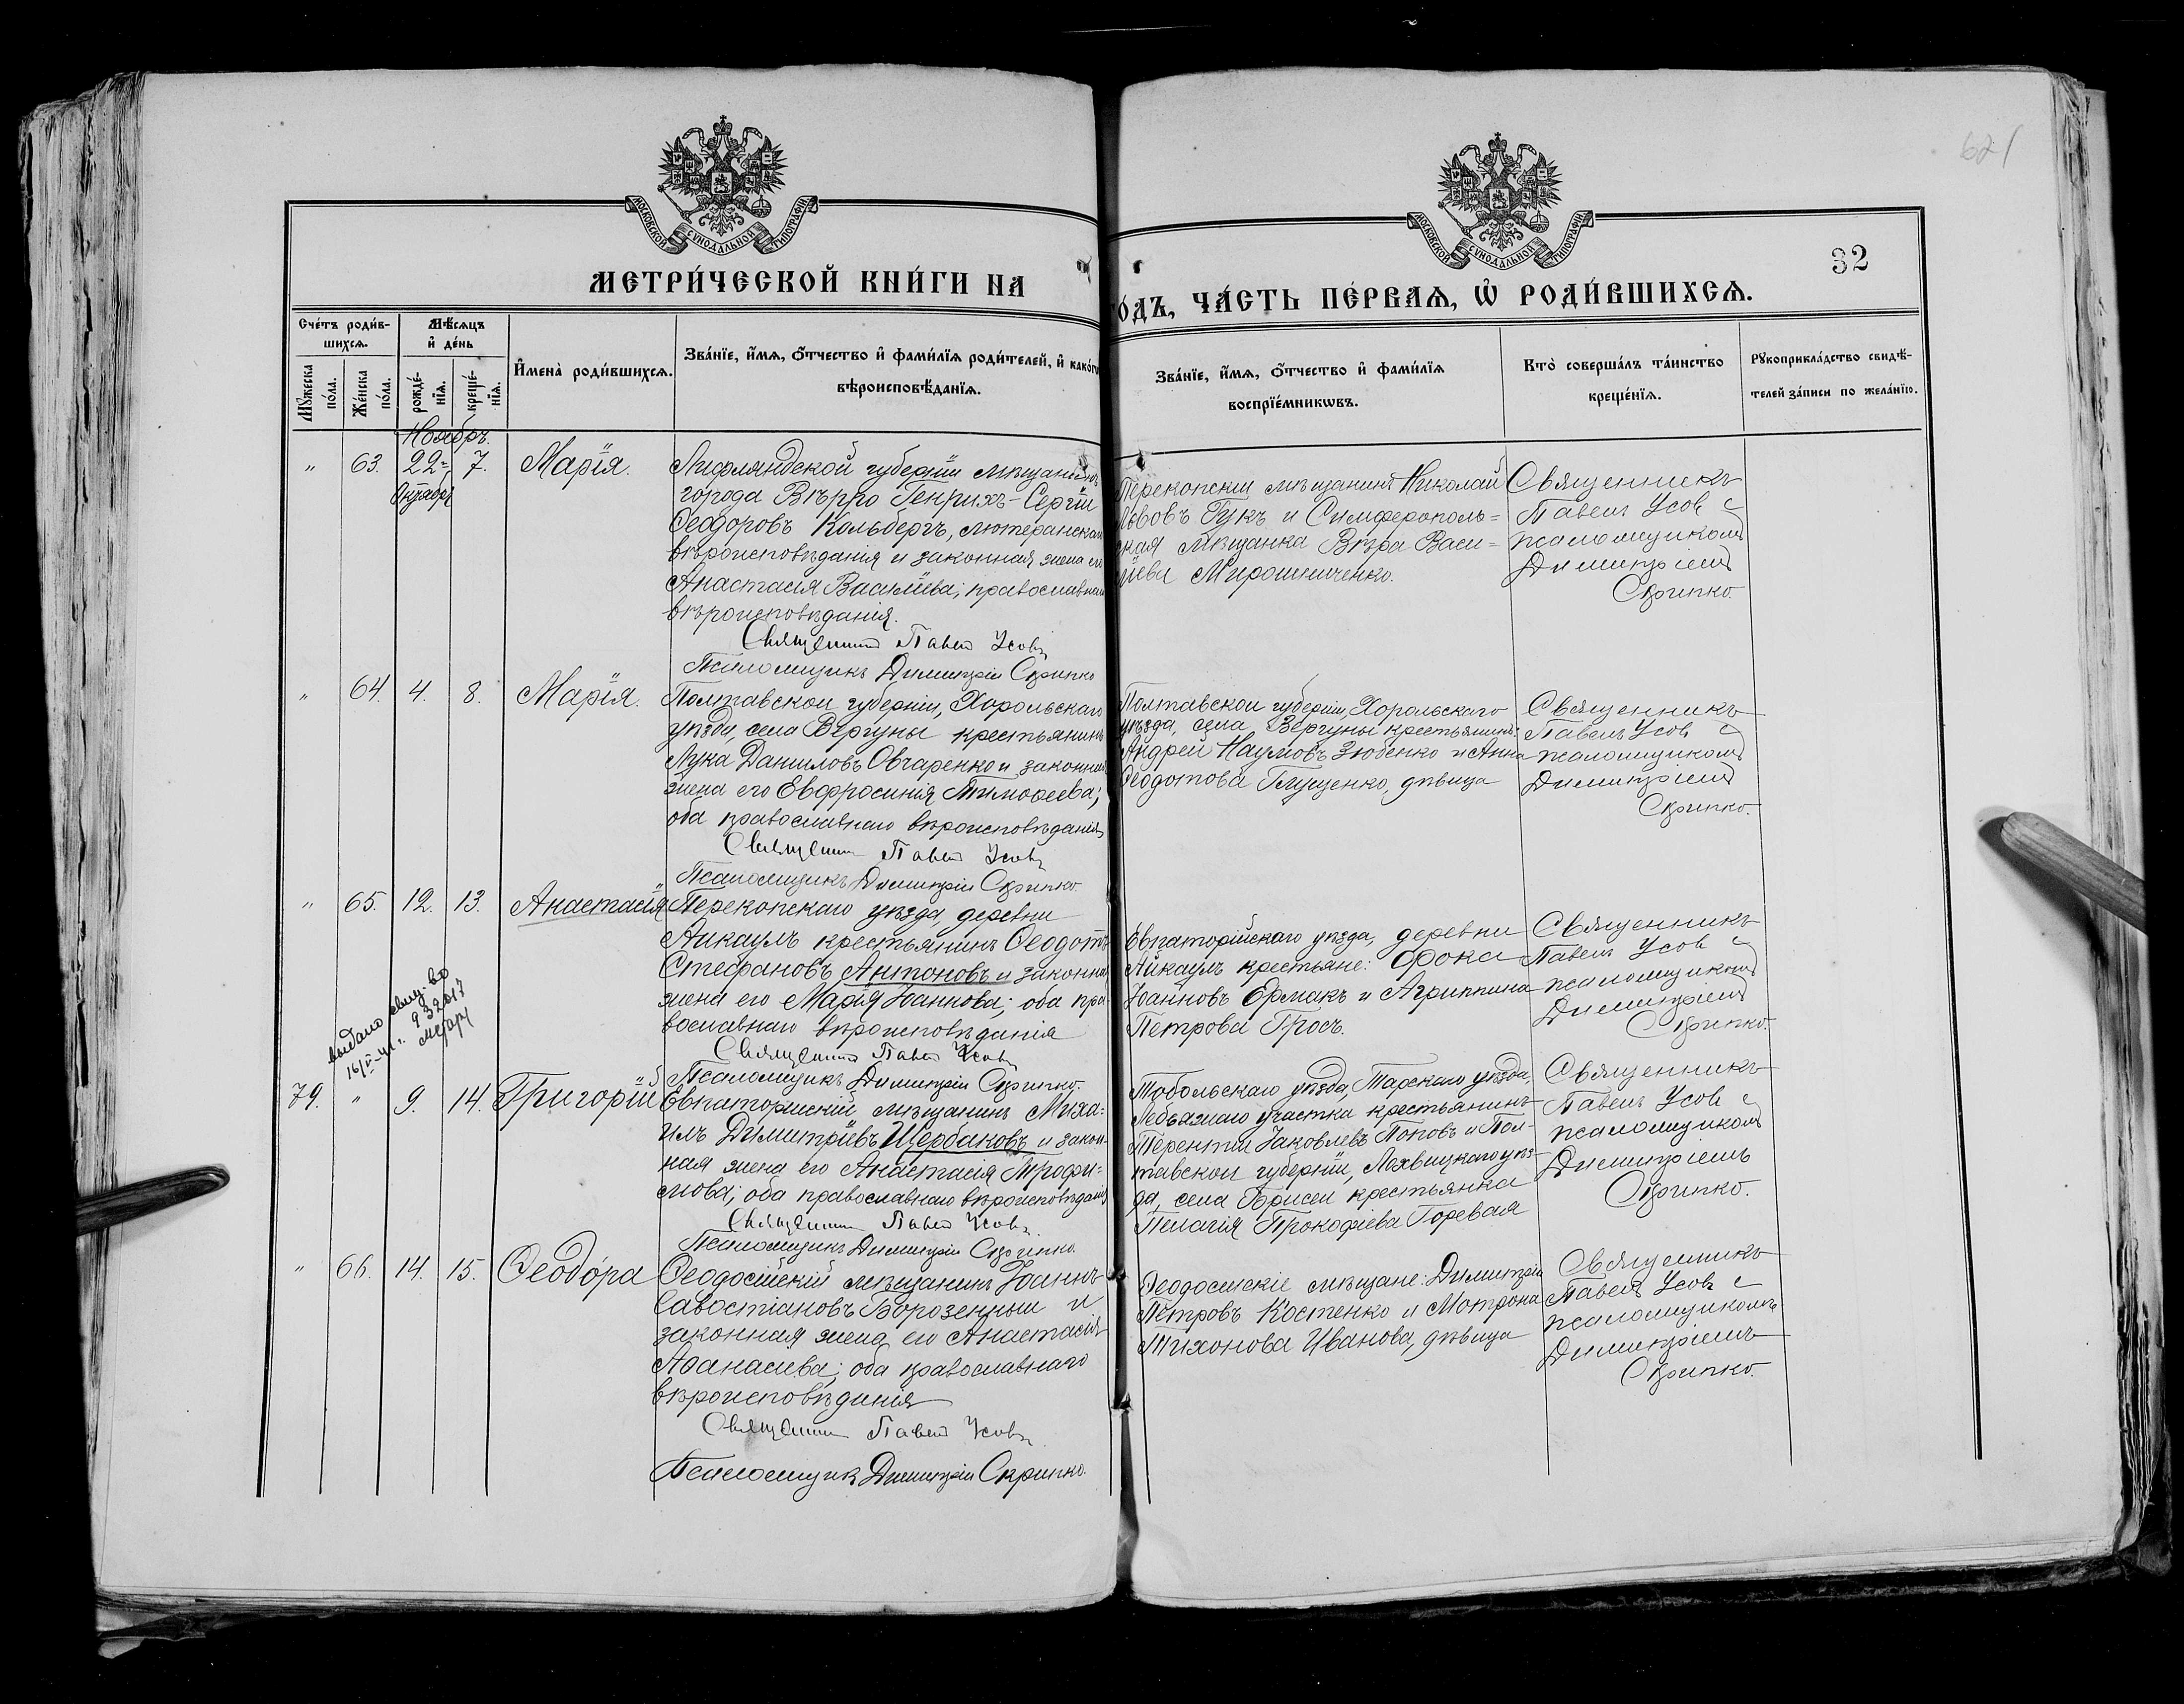 621
МОСКОВСКОЙ СУНОДАЛЬНОЙ ТИПОГРАФІИ
МОСКОВСКОЙ СУНОДАЛЬНОЙ ТИПОГРАФІИ
32
МЕТРИ́ЧЕСКОЙ КНИ́ГИ НА
ГО́ДЪ, ЧА́СТЬ ПЕ́РВАѦ, Ѽ РОДИ́ВШИХСѦ.
Сче́тъ роди́в-
шихсѧ.
Мꙋжеска по́ла.
Же́нска по́ла.
Мѣ́сѧцъ
и҆ де́нь
рожде́нїѧ.
креще́нїѧ.
И҆мена̀ роди́вшихсѧ.
Зва́нїе, и҆́мѧ, ѻ҆́тчество и҆ фами́лїѧ роди́телей, и҆ како́гѡ
вѣроисповѣ́данїѧ.
Зва́нїе, и҆́мѧ, ѻ҆́тчество и҆ фами́лїѧ
воспрїе́мникѡвъ.
Кто̀ соверша́лъ та́инство
креще́нїѧ.
Рꙋкоприкла́дство свидѣ́-
телей за́писи по жела́нїю.
Ноябрь.
" 63. 22 7. Марія.
Октября
Лифляндской губерніи мѣщанинъ
города Вѣрро Генрихъ-Сергій
Ѳеодоровъ Кольбергъ, лютеранскаго
вѣроисповѣданія и законная жена его
Анастасія Васильева, православнаго
вѣроисповѣданія.
Священникъ Павелъ Усовъ
Псаломщикъ Димитрій Скрипко
Перекопскій мѣщанинъ Николай
Львовъ Гукъ и Симферополь=
ская мѣщанка Вѣра Васи=
льева Мирошниченко.
Священникъ
Павелъ Усовъ с
псаломщикомъ
Димитріемъ
Скрипко.
" 64. 4. 8. Марія.
Полтавской губерніи, Хорольскаго
уѣзда, села Вергуны крестьянинъ
Лука Даниловъ Овчаренко и законная
жена его Евфросинія Тимоѳеева;
оба православнаго вѣроисповѣданія
Священникъ Павелъ Усовъ
Псаломщикъ Димитрій Скрипко.
Полтавской губерніи, Хорольскаго
уѣзда, села Вергуны крестьянинъ:
Андрей Наумовъ Зюбенко и Анна
Ѳеодотова Глущенко, дѣвица
Священникъ
Павелъ Усовъ с
псаломщикомъ
Димитріемъ
Скрипко.
" 65. 12. 13. Анастасія
Перекопскаго уѣзда, деревни
Айкаулъ крестьянинъ Ѳеодотъ
Стефановъ Антоновъ и законная
жена его Марія Іоаннова; оба пра-
вославнаго вѣроисповѣданія
Священникъ Павелъ Усовъ
Псаломщикъ Димитрій Скрипко.
Евпаторійскаго уѣзда, деревни
Айкаулъ крестьяне: Фока
Іоанновъ Ермакъ и Агриппина
Петрова Гросъ.
Священникъ
Павелъ Усовъ с
псаломщикомъ
Димитріемъ
Скрипко.
выдано свид-во
16/V-41 г.
79. " 9. 14. Григорій
Евпаторійскій мѣщанинъ Миха=
илъ Димитріевъ Щербаковъ и закон-
ная жена его Анастасія Трофи=
мова; оба православнаго вѣроисповѣданія
Священникъ Павелъ Усовъ
Псаломщикъ Димитрій Скрипко.
Тобольскаго уѣзда, Тарскаго уѣзда,
Лебяжаго участка крестьянинъ
Терентій Іаковлевъ Поповъ и Пол-
тавской губерніи, Лохвицкаго уѣз-
да, села крестьянка
Пелагія Прокофіева Горевая
Священникъ
Павелъ Усовъ с
псаломщикомъ
Димитріемъ
Скрипко.
" 66. 14. 15. Ѳеодо́ра
Ѳеодосійскій мѣщанинъ Іоаннъ
Савостіановъ Борозенный и
законная жена его Анастасія
Аѳанасіева; оба православнаго
вѣроисповѣданія
Священникъ Павелъ Усовъ.
Псаломщикъ Димитрій Скрипко.
Ѳеодосійскіе мѣщане: Димитрій
Петровъ Костенко и Мотрона
Тихонова Иванова, дѣвица
Священникъ
Павелъ Усовъ с
псаломщикомъ
Димитріемъ
Скрипко.